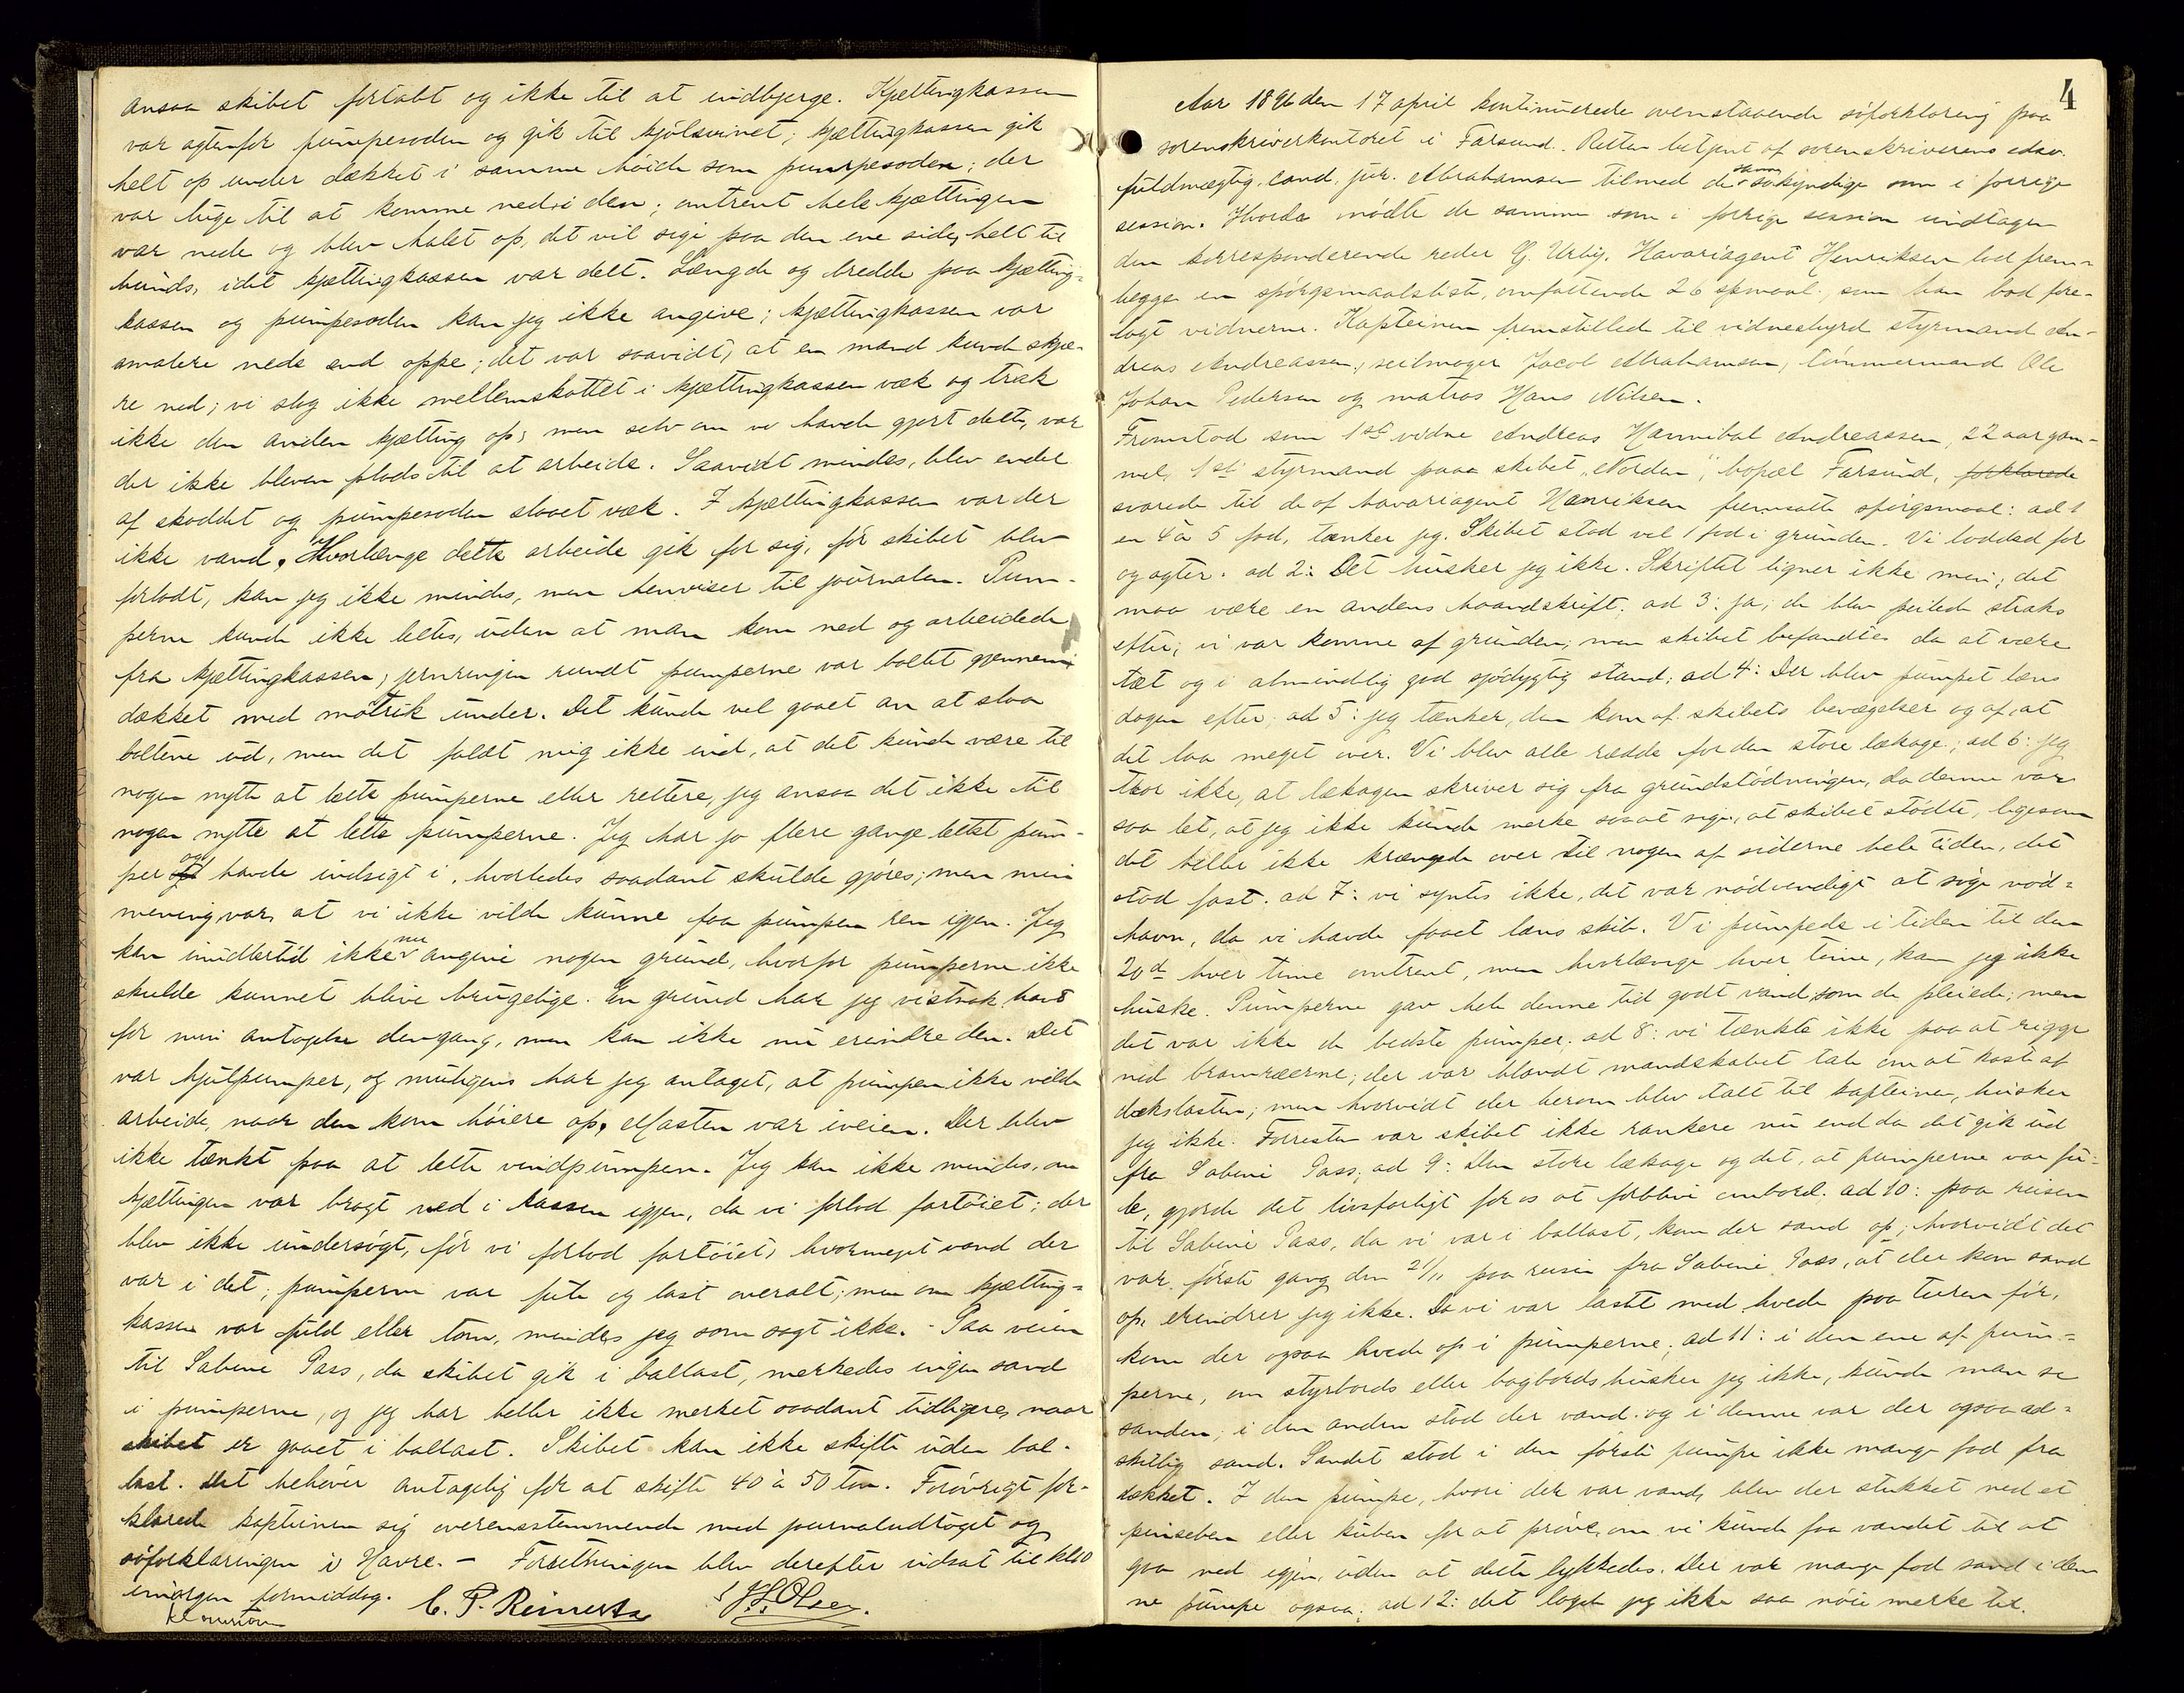 ansaa skibet fortabt og ikke til at indbjerge. Kjettingkassen
var agtenfor pumpesoden og gik til kjølsvinet; kjættingkassen gik
helt op under dækket i samme høide som pumpesoden; der
var luge til at komme ned i den; omtrent hele kjættingen
var nede og blev halet op, det vil sige paa den ene side, helt til
bunds, idet kjættingkassen var delt. Længde og bredde paa kjætting-
kassen og pumpesoden kan jeg ikke angive; kjættingkassen var
smalere nede end oppe; det var saavidt, at en mand kunde skjæ-
re ned; vi slog ikke mellemskottet i kjættingkassen væk og træk
ikke den anden kjætting op; men selv om vi havde gjort dette, var
der ikke bleven plads til at arbeide. Saavidt mindes, blev endel
af skoddet og pumpesoden slaaet væk. I kjættingkassen var der
ikke vand. Hvorlænge dette arbeide gik for sig, før skibet blev
forladt, kan jeg ikke mindes, men henviser til journalen. Pum-
perne kunde ikke lettes, uden at man kom ned og arbeidede
fra kjættingkassen; jernringen rundt pumperne var boltet gjennem
dækket med møtrik under. Det kunde vel gaaet an at slaa
boltene ud, men det faldt mig ikke ind, at det kunde være til
nogen nytte at lette pumperne eller rettere, jeg ansaa det ikke til
nogen nytte at lette pumperne. Jeg har jo flere gange lettet pum-
per og havde indsigt i, hvorledes saadant skulde gjøres; men min
mening var, at vi ikke vilde kunne faa pumpen ren igjen. Jeg
kan imidlertid ikke nu angive nogen grund, hvorfor pumperne ikke
skulde kunnet blive brugelige. En grund har jeg vistnok havt
for min antagelse dengang, men kan ikke nu erindre den. Det
var hjulpumper, og muligens har jeg antaget, at pumpen ikke vilde
arbeide, naar den kom høiere op. Masten var iveien. Der blev
ikke tænkt paa at lette vindpumpen. Jeg kan ikke mindes, om
kjættingen var bragt ned i kassen igjen, da vi forlod fartøiet; der
blev ikke undersøgt, før vi forlod fartøiet, hvormeget vand der
var i det; pumperne var fule og læst overalt; men om kjætting-
kassen var fuld eller tom, mindes jeg som sagt ikke. - Paa veien
til Sabine Pass, da skibet gik i ballast, merkedes ingen sand
i pumperne, og jeg har heller ikke merket saadant tidligere, naar
skibet er gaaet i ballast. Skibet kan ikke skifte uden bal-
last. Det behøver antagelig for at skifte 40 à 50 ton. Forøvrigt for-
klarede kapteinen sig overensstemmende med journaludtoget og
søforklaringen i Havre. - Forretningen blev derefter udsat til kl 10
imorgen formiddag. C. P. Reinertz J. L. Olsen.
4
Aar 1896 den 17 april kontinuerede ovenstaaende søforklaring paa
sorenskriverkontoret i Farsund. Retten betjent af sorenskriverens edsv.
fuldmægtig, cand. jur. Abrahamsen tilmed de samme søkyndige som i forrige
session. Hvorda mødte de samme som i forrige session undtagen
den korresponderende reder G. Urby. Havariagent Henriksen lod frem-
lægge en spørgsmaalsliste, omfattende 26 spmaal som han bad fore-
lagt vidnerne. Kapteinen fremstilled til vidnesbyrd styrmand An-
dreas Andreassen, seilmager Jacob Abrahamsen, tømmermand Ole
Johan Pedersen og matros Hans Nilsen.
Fremstod som 1ste vidne Andreas Hannibal Andreassen, 22 aar gam-
mel, 1st styrmand paa skibet "Norden", bopæl Farsund, forklarede
svarede til de af havariagent Henriksen fremsatte spørgsmaal: ad 1
en 4 à 5 fod, tænker jeg. Skibet stod vel 1 fod i grunden. Vi loddad for
og agter. ad 2: Det husker jeg ikke. Skriftet ligner ikke min; det
maa være en andens haandskrift. ad 3: ja, de blev peilede straks
efter, vi var komne af grunden; men skibet befandtes da at være
tæt og i almindelig god sjødygtig stand. ad 4: Der blev pumpet læns
dagen efter. ad 5: jeg tænker, den kom af skibets bevægelser og af, at
det laa meget over. Vi blev alle rædde for den store lækage; ad 6: jeg
tror ikke, at lækagen skriver sig fra grundstødningen, da denne var
saa let, at jeg ikke kunde merke saaat sige, at skibet stødte, ligesom
det heller ikke krængede over til nogen af siderne hele tiden, det
stod fast. ad 7: vi syntes ikke, det var nødvendigt at søge nød-
havn, da vi havde faaet læns skib. Vi pumpede i tiden til den
20de hver time omtrent, men hvorlænge hver time, kan jeg ikke
huske. Pumperne gav hele denne tid godt vand, som de pleiede; men
det var ikke de bedste pumper. ad 8: vi tænkte ikke paa at rigge
ned bramræerne; der var blandt mandskabet tale om at kaste af
dækslasten; men hvorvidt der herom blev talt til kapteinen, husker
jeg ikke. Forresten var skibet ikke rankere nu end da det gik ud
fra Sabine Pass; ad 9: Den store lækage og det, at pumperne var fu-
le, gjorde det livsfarligt for os at forblive ombord. ad 10: paa reisen
til Sabine Pass, da vi var i ballast, kom der sand op; hvorvidt det
var første gang den 21/11 paa reisen fra Sabine Pass, at der kom sand
op, erindrer jeg ikke. Da vi var lastet med hvede paa turen før,
kom der ogsaa hvede op i pumperne; ad 11: i den ene af pum-
perne, om styrbords eller bagbords husker jeg ikke, kunde man se
sanden; i den anden stod der vand og i denne var der ogsaa ad-
skillig sand. Sandet stod i den første pumpe ikke mange fod fra
dækket. I den pumpe, hvori der var vand, blev der stukket ned et
eller for at prøve, om vi kunde faa vandet til at
gaa ned igjen, uden at dette lykkedes. Der var mange fod sand i den-
ne pumpe ogsaa; ad 12: det laget jeg ikke saa nøie merke til.